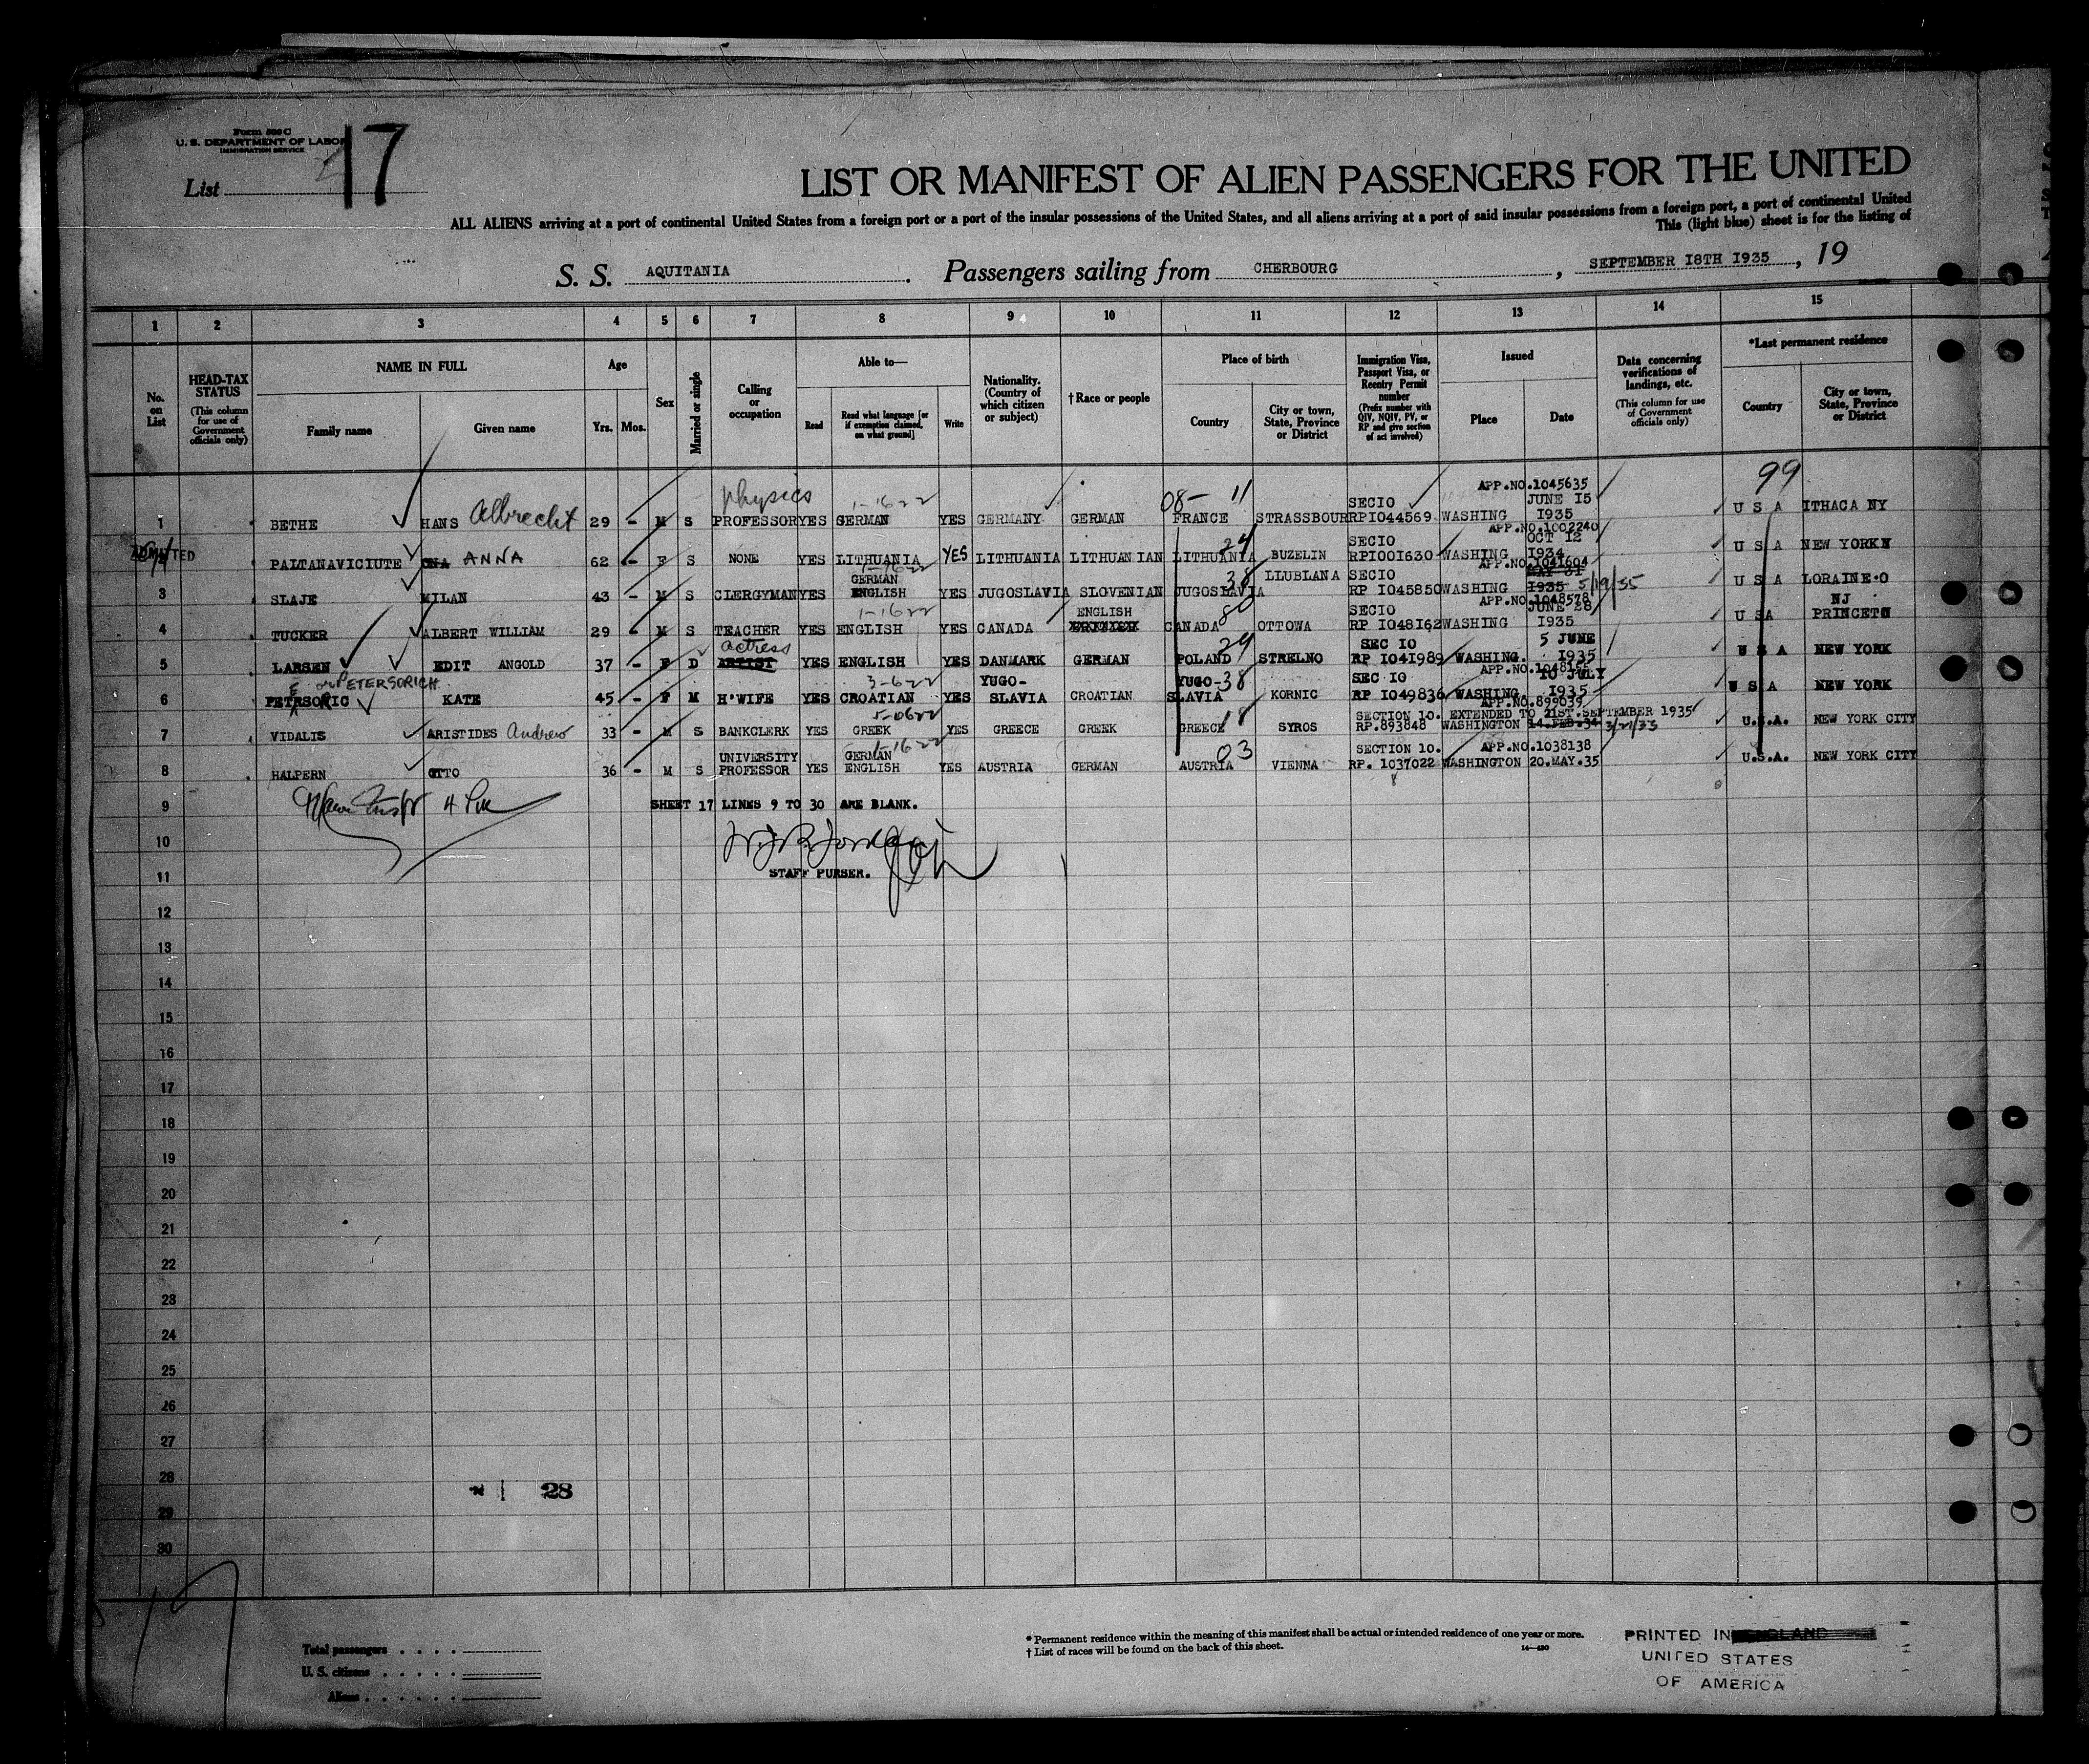 Form 500 C
U. S. DEPARTMENT OF LABOR
IMMIGRATION SERVICE
List 17
LIST OR MANIFEST OF ALIEN PASSENGERS FOR THE UNITED
ALL ALIENS arriving at a port of continental United States from a foreign port or a port of the insular possessions of the United States, and all aliens arriving at a port of said insular possessions from a foreign port, a port of continental United
This (light blue) sheet is for the listing of
S. S. AQUITANIA . Passengers sailing from CHERBOURG , SEPTEMBER 18TH 1935 , 19
1 2 3 4 5 6 7 8 9 10 11 12 13 14 15
No. on List
HEAD-TAX STATUS (This column for use of Government officials only)
NAME IN FULL
Family name Given name
Age
Yrs. Mos.
Sex
Married or single
Calling or occupation
Able to—
Read Read what language [or if exemption claimed, on what ground] Write
Nationality. (Country of which citizen or subject)
† Race or people
Place of birth
Country City or town, State, Province or District
Immigration Visa, Passport Visa, or Reentry Permit number (Prefix number with QIV, NQIV, PV, or RP and give section of act involved)
Issued
Place Date
Data concerning verifications of landings, etc. (This column for use of Government officials only)
*Last permanent residence
Country City or town, State, Province or District
99
physics 1-1622 08- 11 SECIO APP.NO.1045635 JUNE 15
1 BETHE HANS Albrecht 29 - M S PROFESSOR YES GERMAN YES GERMANY GERMAN FRANCE STRASSBOUR RPIO44569 WASHING I935 U S A ITHACA NY
APP.NO.1002240
ADMITTED 24 SECIO OCT 12
PALTANAVICIUTE ONA ANNA 62 - F S NONE YES LITHUANIA YES LITHUANIA LITHUANIAN LITHUANIA BUZELIN RPIOOI630 WASHING I934 U S A NEW YORK N
1-1622 APP.NO.1041604
GERMAN 38 LLUBLANA SECIO MAY 31
3 SLAJE MILAN 43 - M S CLERGYMAN YES ENGLISH YES JUGOSLAVIA SLOVENIAN JUGOSLAVIA RP I045850 WASHING I935 5/19/35 U S A LORAINE.O
1-1622 ENGLISH 80 SECIO APP.NO.1048578 JUNE 28 NJ
4 TUCKER ALBERT WILLIAM 29 - M S TEACHER YES ENGLISH YES CANADA BRITISH CANADA OTTOWA RP I048I62 WASHING I935 U S A PRINCETO
actress 24 SEC IO 5 JUNE
5 LARSEN EDIT ANGOLD 37 - F D ARTIST YES ENGLISH YES DANMARK GERMAN POLAND STRELNO RP I04I989 WASHING. I935 U S A NEW YORK
or PETERSORICH 3-622 YUGO- YUGO- 38 SEC IO APP.NO.1048155 IO JULY
6 PETRSORIC KATE 45 - F M H'WIFE YES CROATIAN YES SLAVIA CROATIAN SLAVIA KORNIC RP I049836 WASHING. I935 U S A NEW YORK
APP.NO.899039
5-0622 18 SECTION 10. EXTENDED TO 21ST.SEPTEMBER 1935
7 VIDALIS ARISTIDES Andrew 33 - M S BANKCLERK YES GREEK YES GREECE GREEK GREECE SYROS RP.893848 WASHINGTON 14.FEB.34 3/21/33 U.S.A. NEW YORK CITY
UNIVERSITY GERMAN 1-1622 03 SECTION 10. APP.NO.1038138
8 HALPERN OTTO 36 - M S PROFESSOR YES ENGLISH YES AUSTRIA GERMAN AUSTRIA VIENNA RP. 1037022 WASHINGTON 20.MAY.35 U.S.A. NEW YORK CITY
8
9 SHEET 17 LINES 9 TO 30 ARE BLANK.
10
11 STAFF PURSER.
12
13
14
15
16
17
18
19
20
21
22
23
24
25
26
27
28
28
29
30
17
Total passengers
U. S. citizens
Aliens
* Permanent residence within the meaning of this manifest shall be actual or intended residence of one year or more.
† List of races will be found on the back of this sheet.
14—430
PRINTED IN ENGLAND
UNITED STATES
OF AMERICA